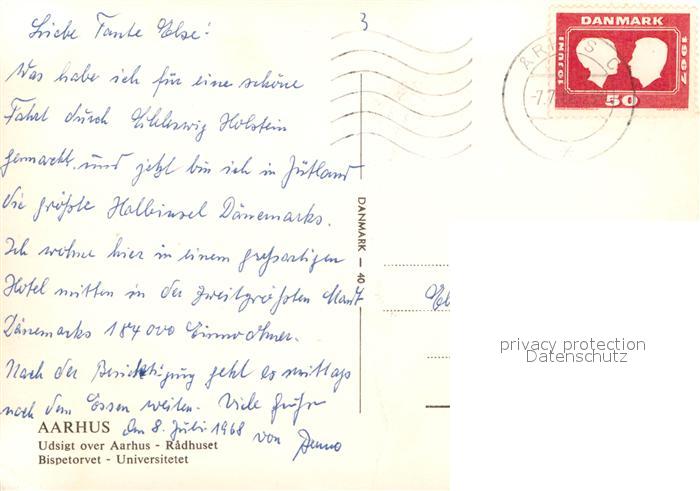 Liebe Tante Else!
3
Was habe ich für eine schöne
Fahrt durch Schleswig Holstein
gemacht und jetzt bin ich in Jütland
die größte Halbinsel Dänemarks.
Ich wohne hier in einem großartigen
Hotel mitten in der zweitgrößten Stadt
Dänemarks 184 000 Einwohner.
Nach der Besichtigung geht es mittags
nach dem Essen weiter. Viele Grüße
den 8. Juli 1968 von
AARHUS
Udsigt over Aarhus - Rådhuset
Bispetorvet - Universitetet
DANMARK — 40
DANMARK
10 JUNI
1967
50
ÅRHUS C
-7.7
privacy protection
Datenschutz